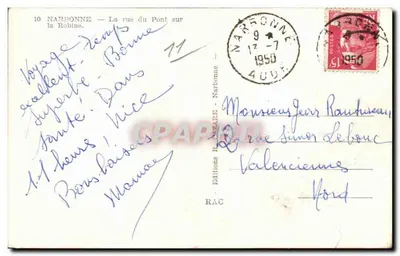 10 NARBONNE — La rue du Pont sur
la Robine.
Voyage
excellent. Temps
superbe. Bonne
santé! Dans
11 heures! Nice
Bons baisers
Maman
11
NARBONNE
9 *
13 -7
1950
AUDE
NARBONNE
1950
15F
Monsieur Pierre
2 rue Lebouc
Valenciennes
Nord
Editions
Narbonne
RAC
CARTE POSTALE